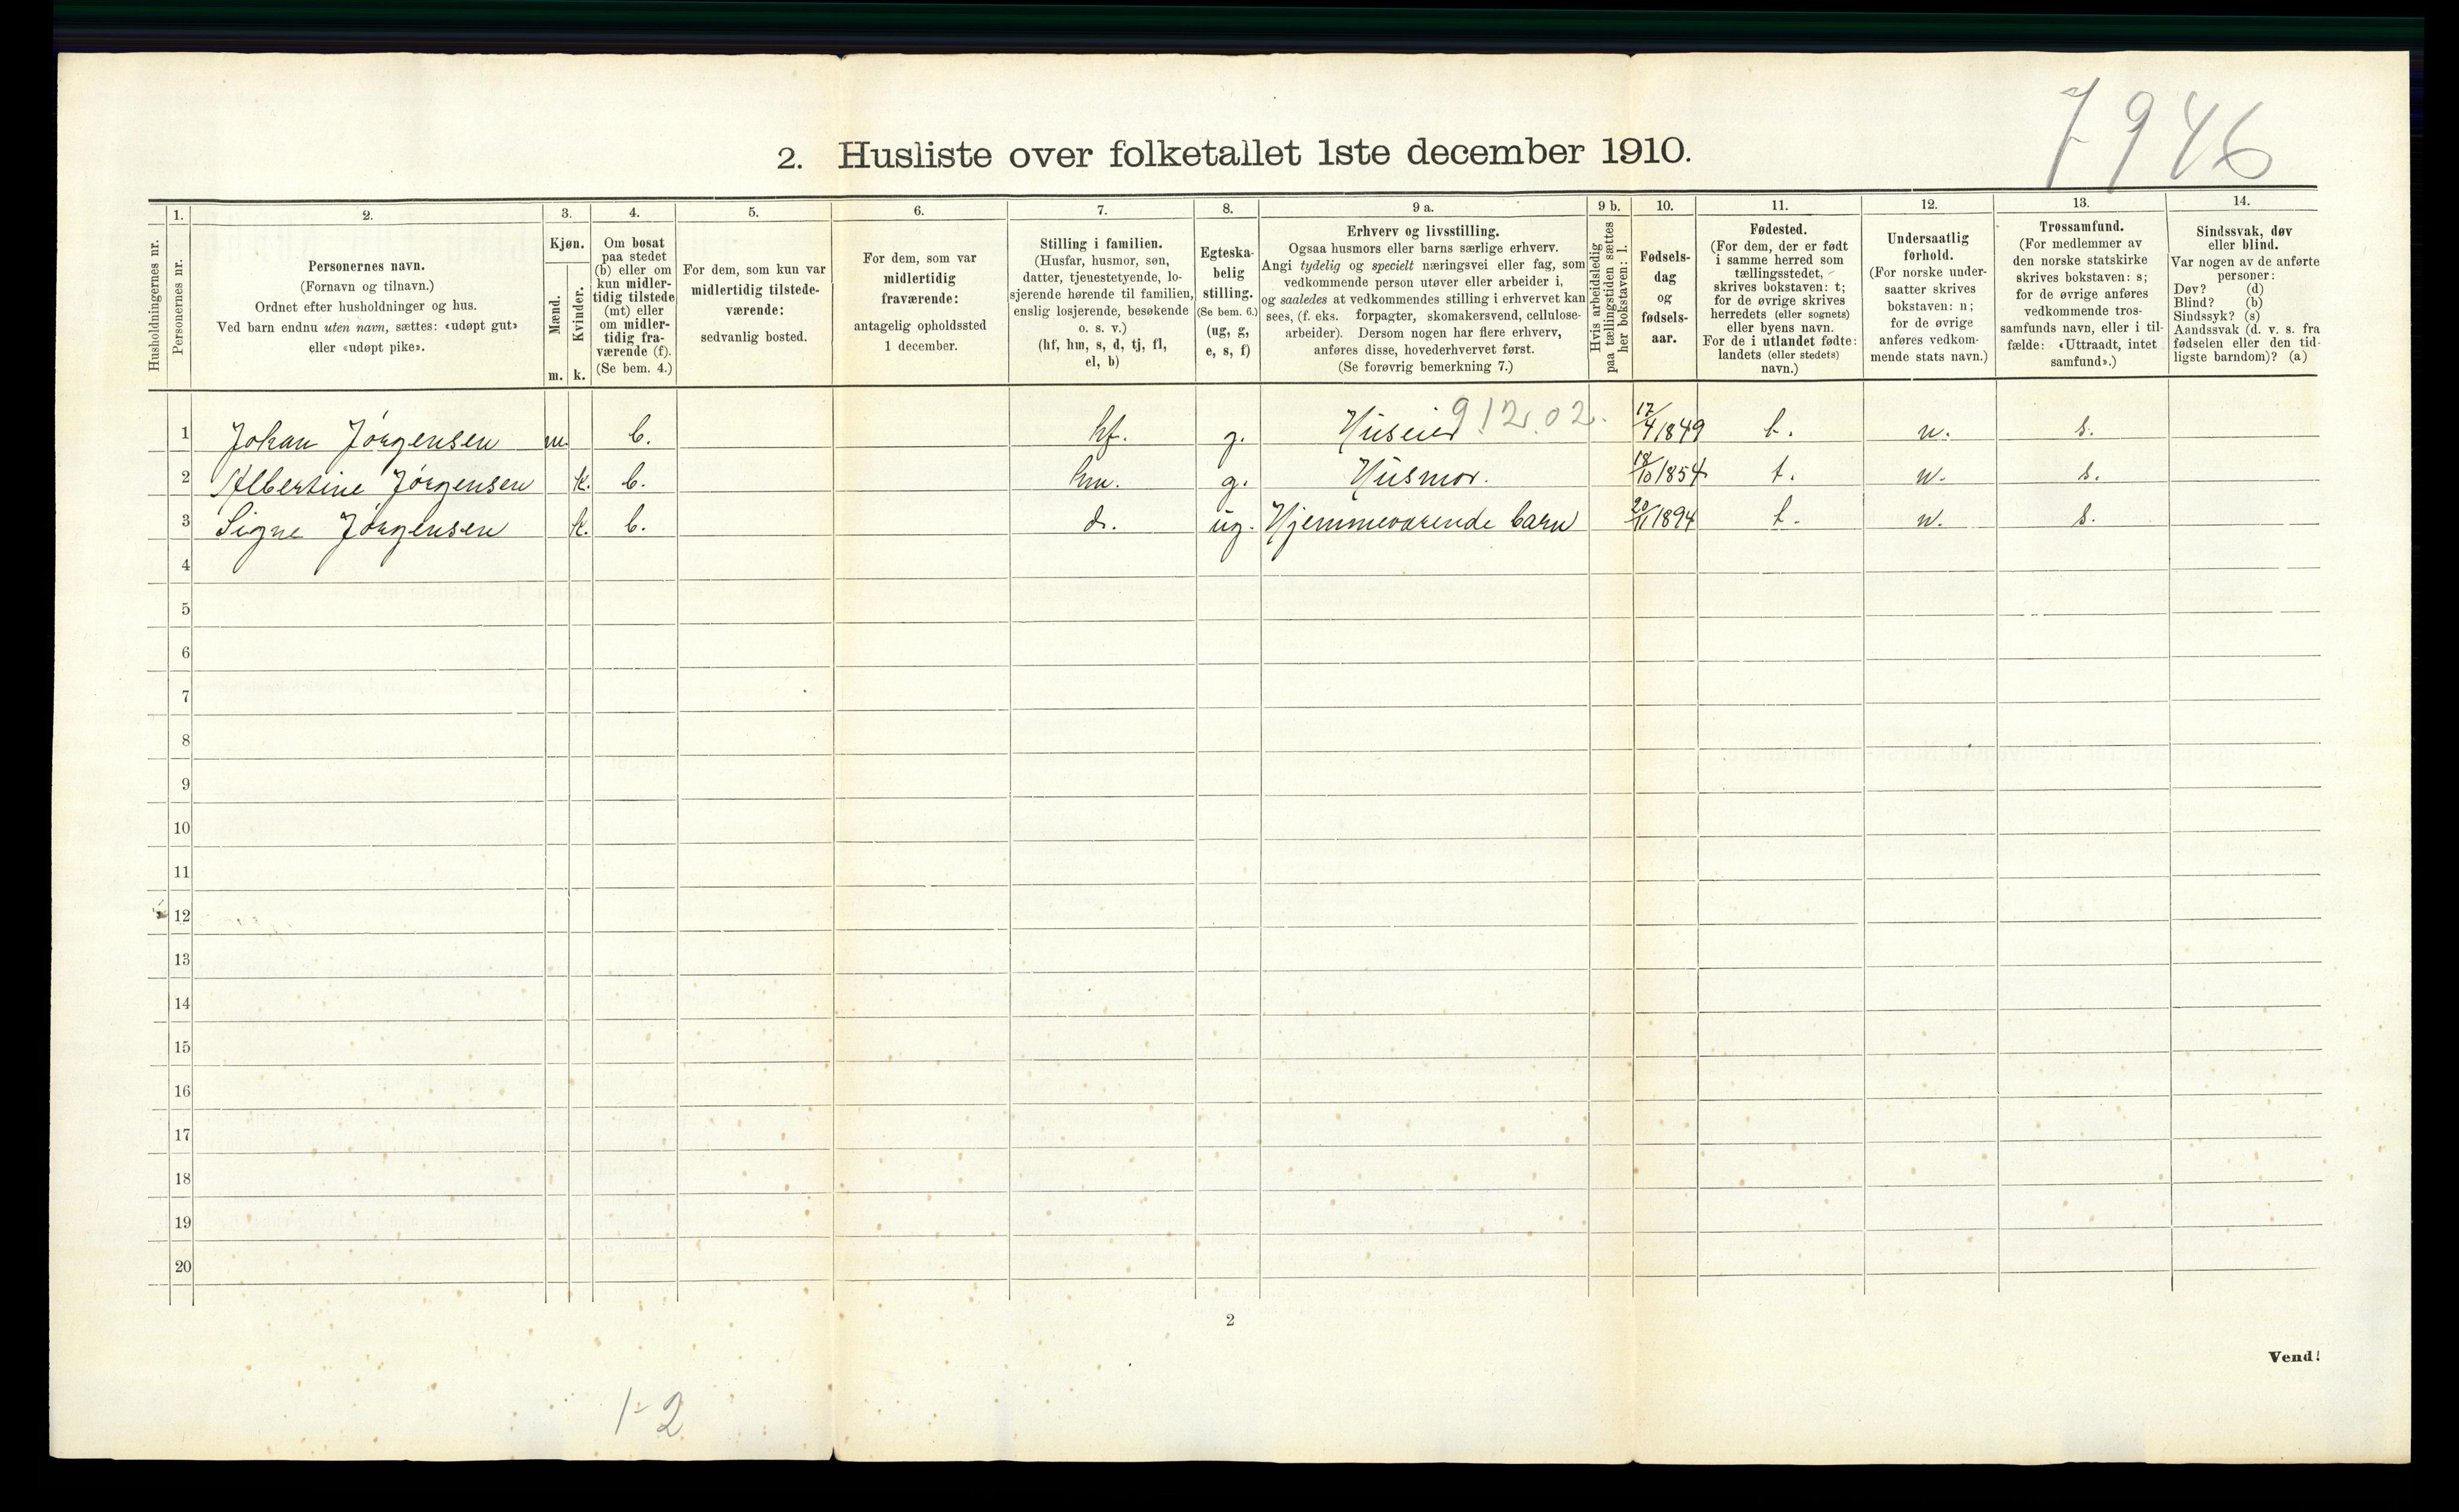 7946
2. Husliste over folketallet 1ste december 1910.
Husholdningernes nr.
1.
Personernes nr.
2.
Personernes navn.
(Fornavn og tilnavn.)
Ordnet efter husholdninger og hus.
Ved barn endnu uten navn, sættes: «udøpt gut»
eller «udøpt pike».
3.
Kjøn.
Mænd.
Kvinder.
m. k.
4.
Om bosat
paa stedet
(b) eller om
kun midler-
tidig tilstede
(mt) eller
om midler-
tidig fra-
værende (f).
(Se bem. 4.)
5.
For dem, som kun var
midlertidig tilstede-
værende:
sedvanlig bosted.
6.
For dem, som var
midlertidig
fraværende:
antagelig opholdssted
1 december.
7.
Stilling i familien.
(Husfar, husmor, søn,
datter, tjenestetyende, lo-
sjerende hørende til familien,
enslig losjerende, besøkende
o. s. v.)
(hf, hm, s, d, tj, fl,
el, b)
8.
Egteska-
belig
stilling.
(Se bem. 6.)
(ug, g,
e, s, f)
9 a.
Erhverv og livsstilling.
Ogsaa husmors eller barns særlige erhverv.
Angi tydelig og specielt næringsvei eller fag, som
vedkommende person utøver eller arbeider i,
og saaledes at vedkommendes stilling i erhvervet kan
sees, (f. eks. forpagter, skomakersvend, cellulose-
arbeider). Dersom nogen har flere erhverv,
anføres disse, hovederhvervet først.
(Se forøvrig bemerkning 7.)
9 b.
Hvis arbeidsledig
paa tællingstiden sættes
her bokstaven: l.
10.
Fødsels-
dag
og
fødsels-
aar.
11.
Fødested.
(For dem, der er født
i samme herred som
tællingsstedet,
skrives bokstaven: t;
for de øvrige skrives
herredets (eller sognets)
eller byens navn.
For de i utlandet fødte:
landets (eller stedets)
navn.)
12.
Undersaatlig
forhold.
(For norske under-
saatter skrives
bokstaven: n;
for de øvrige
anføres vedkom-
mende stats navn.)
13.
Trossamfund.
(For medlemmer av
den norske statskirke
skrives bokstaven: s;
for de øvrige anføres
vedkommende tros-
samfunds navn, eller i til-
fælde: «Uttraadt, intet
samfund».)
14.
Sindssvak, døv
eller blind.
Var nogen av de anførte
personer:
Døv? (d)
Blind? (b)
Sindssyk? (s)
Aandssvak (d. v. s. fra
fødselen eller den tid-
ligste barndom)? (a)
1 Johan Jørgensen m. b. hf. g. Huseier 912.02. 17/4 1849 t. n. s.
2 Albertine Jørgensen k. b. hm. g. Husmor. 18/10 1854 t. n. s.
3 Signe Jørgensen k. b. d. ug. Hjemmeværende barn 20/11 1894 t. n. s.
4
5
6
7
8
9
10
11
12
13
14
15
16
17
18
19
20
2
Vend!
1-2